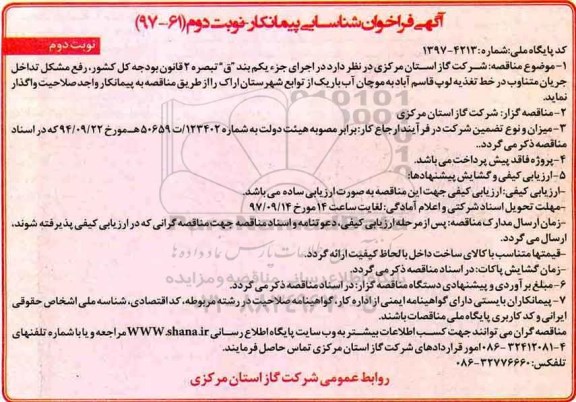 آگهی فراخوان شناسایی پیمانکار-نوبت دوم (۶۱-۹۷)
نوبت دوم
کد پایگاه ملی: شماره: ۱۳۹۷-۴۲۱۳
۱-موضوع مناقصه: شرکت گاز استان مرکزی در نظر دارد در اجرای جزء یکم بند "ق" تبصره ۲ قانون بودجه کل کشور، رفع مشکل تداخل
جریان متناوب در خط تغذیه لوپ قاسم آباد به موچان آب باریک از توابع شهرستان اراک را از طریق مناقصه به پیمانکار واجد صلاحیت واگذار
نماید.
۲-مناقصه گزار: شرکت گاز استان مرکزی
۳-میزان و نوع تضمین شرکت در فرآیند ارجاع کار: برابر مصوبه هیئت دولت به شماره ۱۲۳۴۰۲/ت ۵۰۶۵۹ هـ مورخ ۹۴/۰۹/۲۲ که در اسناد
مناقصه ذکر می گردد..
۴-پروژه فاقد پیش پرداخت می باشد.
۵-ارزیابی کیفی و گشایش پیشنهادها:
-ارزیابی کیفی: ارزیابی کیفی جهت این مناقصه به صورت ارزیابی ساده می باشد.
-مهلت تحویل اسناد شرکتی و اعلام آمادگی: لغایت ساعت ۱۴ مورخ ۹۷/۰۹/۱۴
-زمان ارسال مدارک مناقصه: پس از مرحله ارزیابی کیفی، دعوتنامه و اسناد مناقصه جهت مناقصه گرانی که در ارزیابی کیفی پذیرفته شوند،
ارسال می گردد.
-قیمتها متناسب با کالای ساخت داخل با لحاظ کیفیت ارائه گردد.
-زمان گشایش پاکات: در اسناد مناقصه ذکر می گردد.
۶-مبلغ برآوردی و پیشنهادی دستگاه مناقصه گزار: در اسناد مناقصه ذکر می گردد.
۷-پیمانکاران بایستی دارای گواهینامه ایمنی از اداره کار، گواهینامه صلاحیت در رشته مربوطه، کد اقتصادی، شناسه ملی اشخاص حقوقی
ایرانی و کد کاربری پایگاه ملی مناقصات باشند.
مناقصه گران می توانند جهت کسب اطلاعات بیشتر به وب سایت پایگاه اطلاع رسانی WWW.shana.ir مراجعه و یا با شماره تلفنهای
۰۸۶-۳۲۴۱۲۰۸۱-۴ امور قراردادهای شرکت گاز استان مرکزی تماس حاصل فرمایند.
تلفکس: ۰۸۶-۳۲۷۷۶۶۶۰
روابط عمومی شرکت گاز استان مرکزی